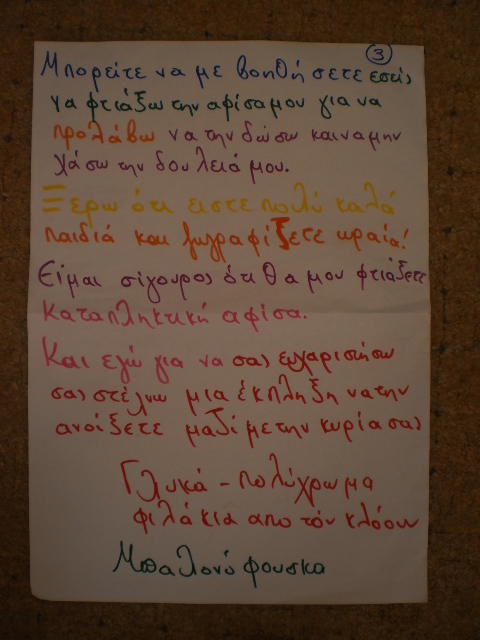 3
Μπορείτε να με βοηθήσετε εσείς
να φτιάξω την αφίσα μου για να
προλάβω να την δώσω και να μην
χάσω την δουλειά μου.
Ξερω ότι ειστε πολύ καλά
παιδιά και ζωγραφίζετε ωραία!
Είμαι σίγουρος ότι θα μου φτιάξετε
καταπληκτική αφίσα.
Και εγώ για να σας ευχαριστήσω
σας στέλνω μια έκπληξη να την
ανοίξετε μαζί με την κυρία σας
Γλυκά - πολύχρωμα
φιλάκια απο τον κλόουν
Μπαλονόφουσκα